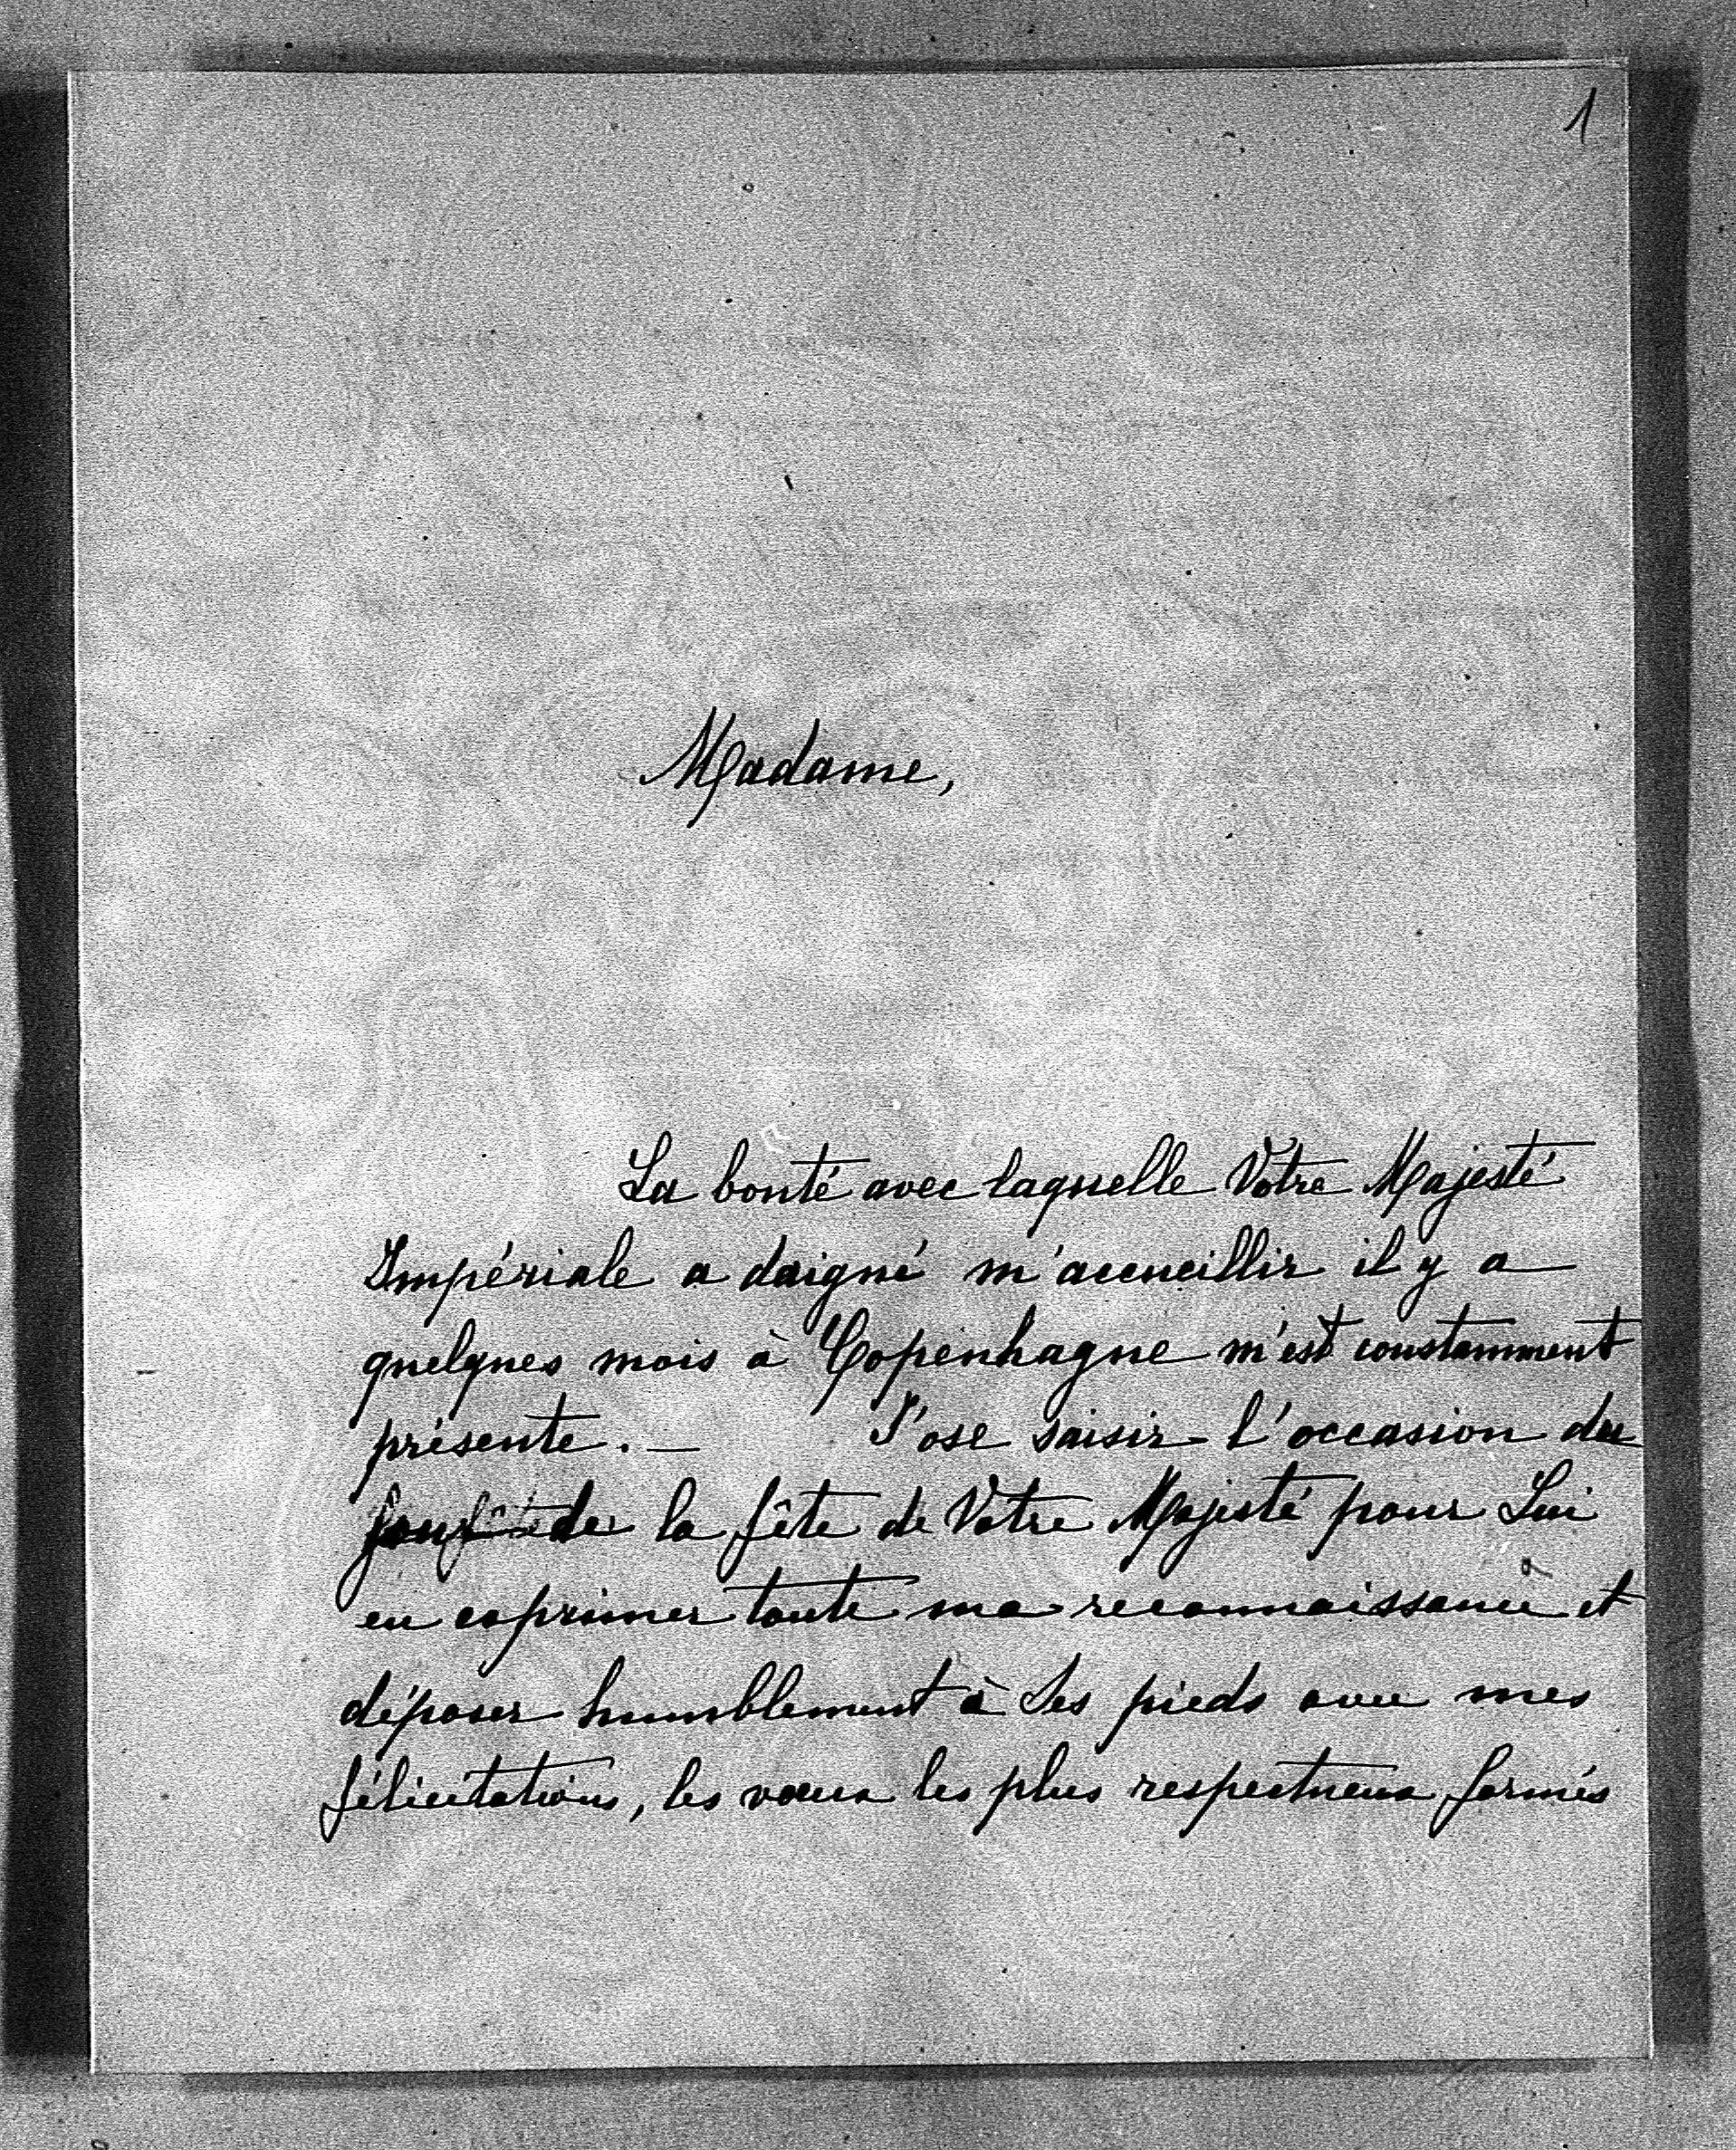 1
Madame,
La bonté avec laquelle Votre Majesté
Impériale a daigné m'accueillir il y a
quelques mois à Copenhague m'est constamment
présente. — J'ose saisir l'occasion du
jour de la fête de Votre Majesté pour Lui
en exprimer toute ma reconnaissance et
déposer humblement à Ses pieds avec mes
félicitations, les vœux les plus respectueux formés